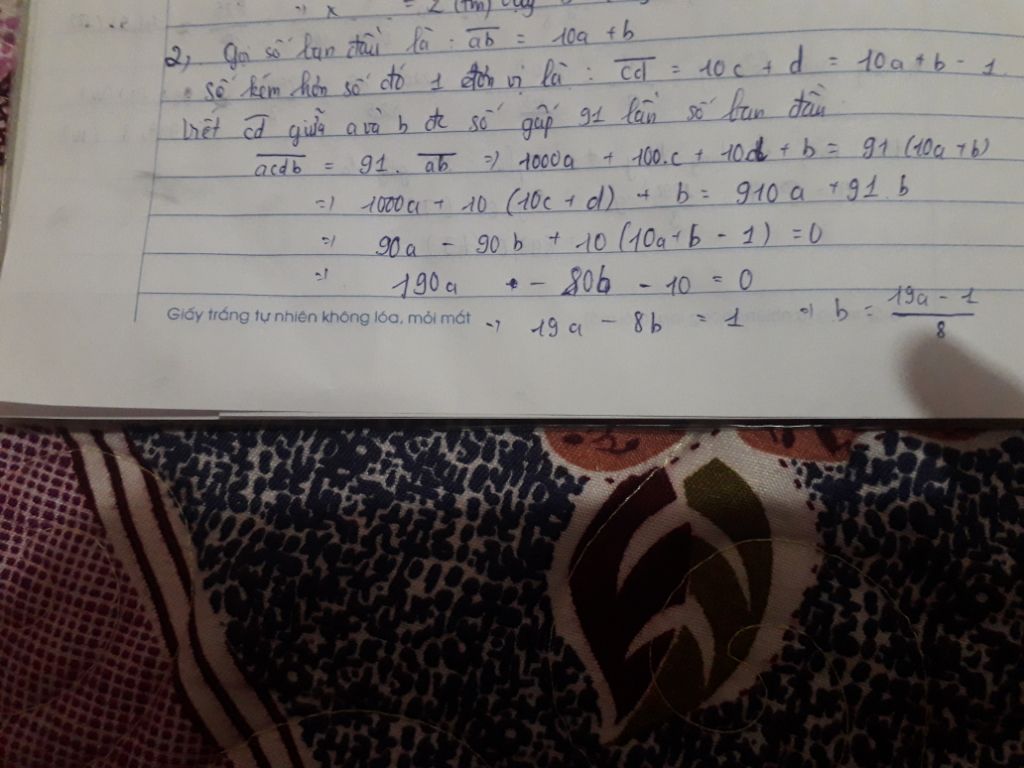 =) x = 2 (tm)
2, Gọi số ban đầu là : ab = 10a + b
số kém hơn số đó 1 đơn vị là : cd = 10c + d = 10a + b - 1
viết cd giữa a và b đc số gấp 91 lần số ban đầu
acdb = 91. ab =) 1000a + 100.c + 10d + b = 91 (10a + b)
=) 1000a + 10 (10c + d) + b = 910 a + 91. b
=) 90a - 90b + 10 (10a + b - 1) = 0
=) 190a - 80b - 10 = 0
Giấy trắng tự nhiên không lóa, mỏi mát =) 19a - 8b = 1 =) b = (19a - 1)/8